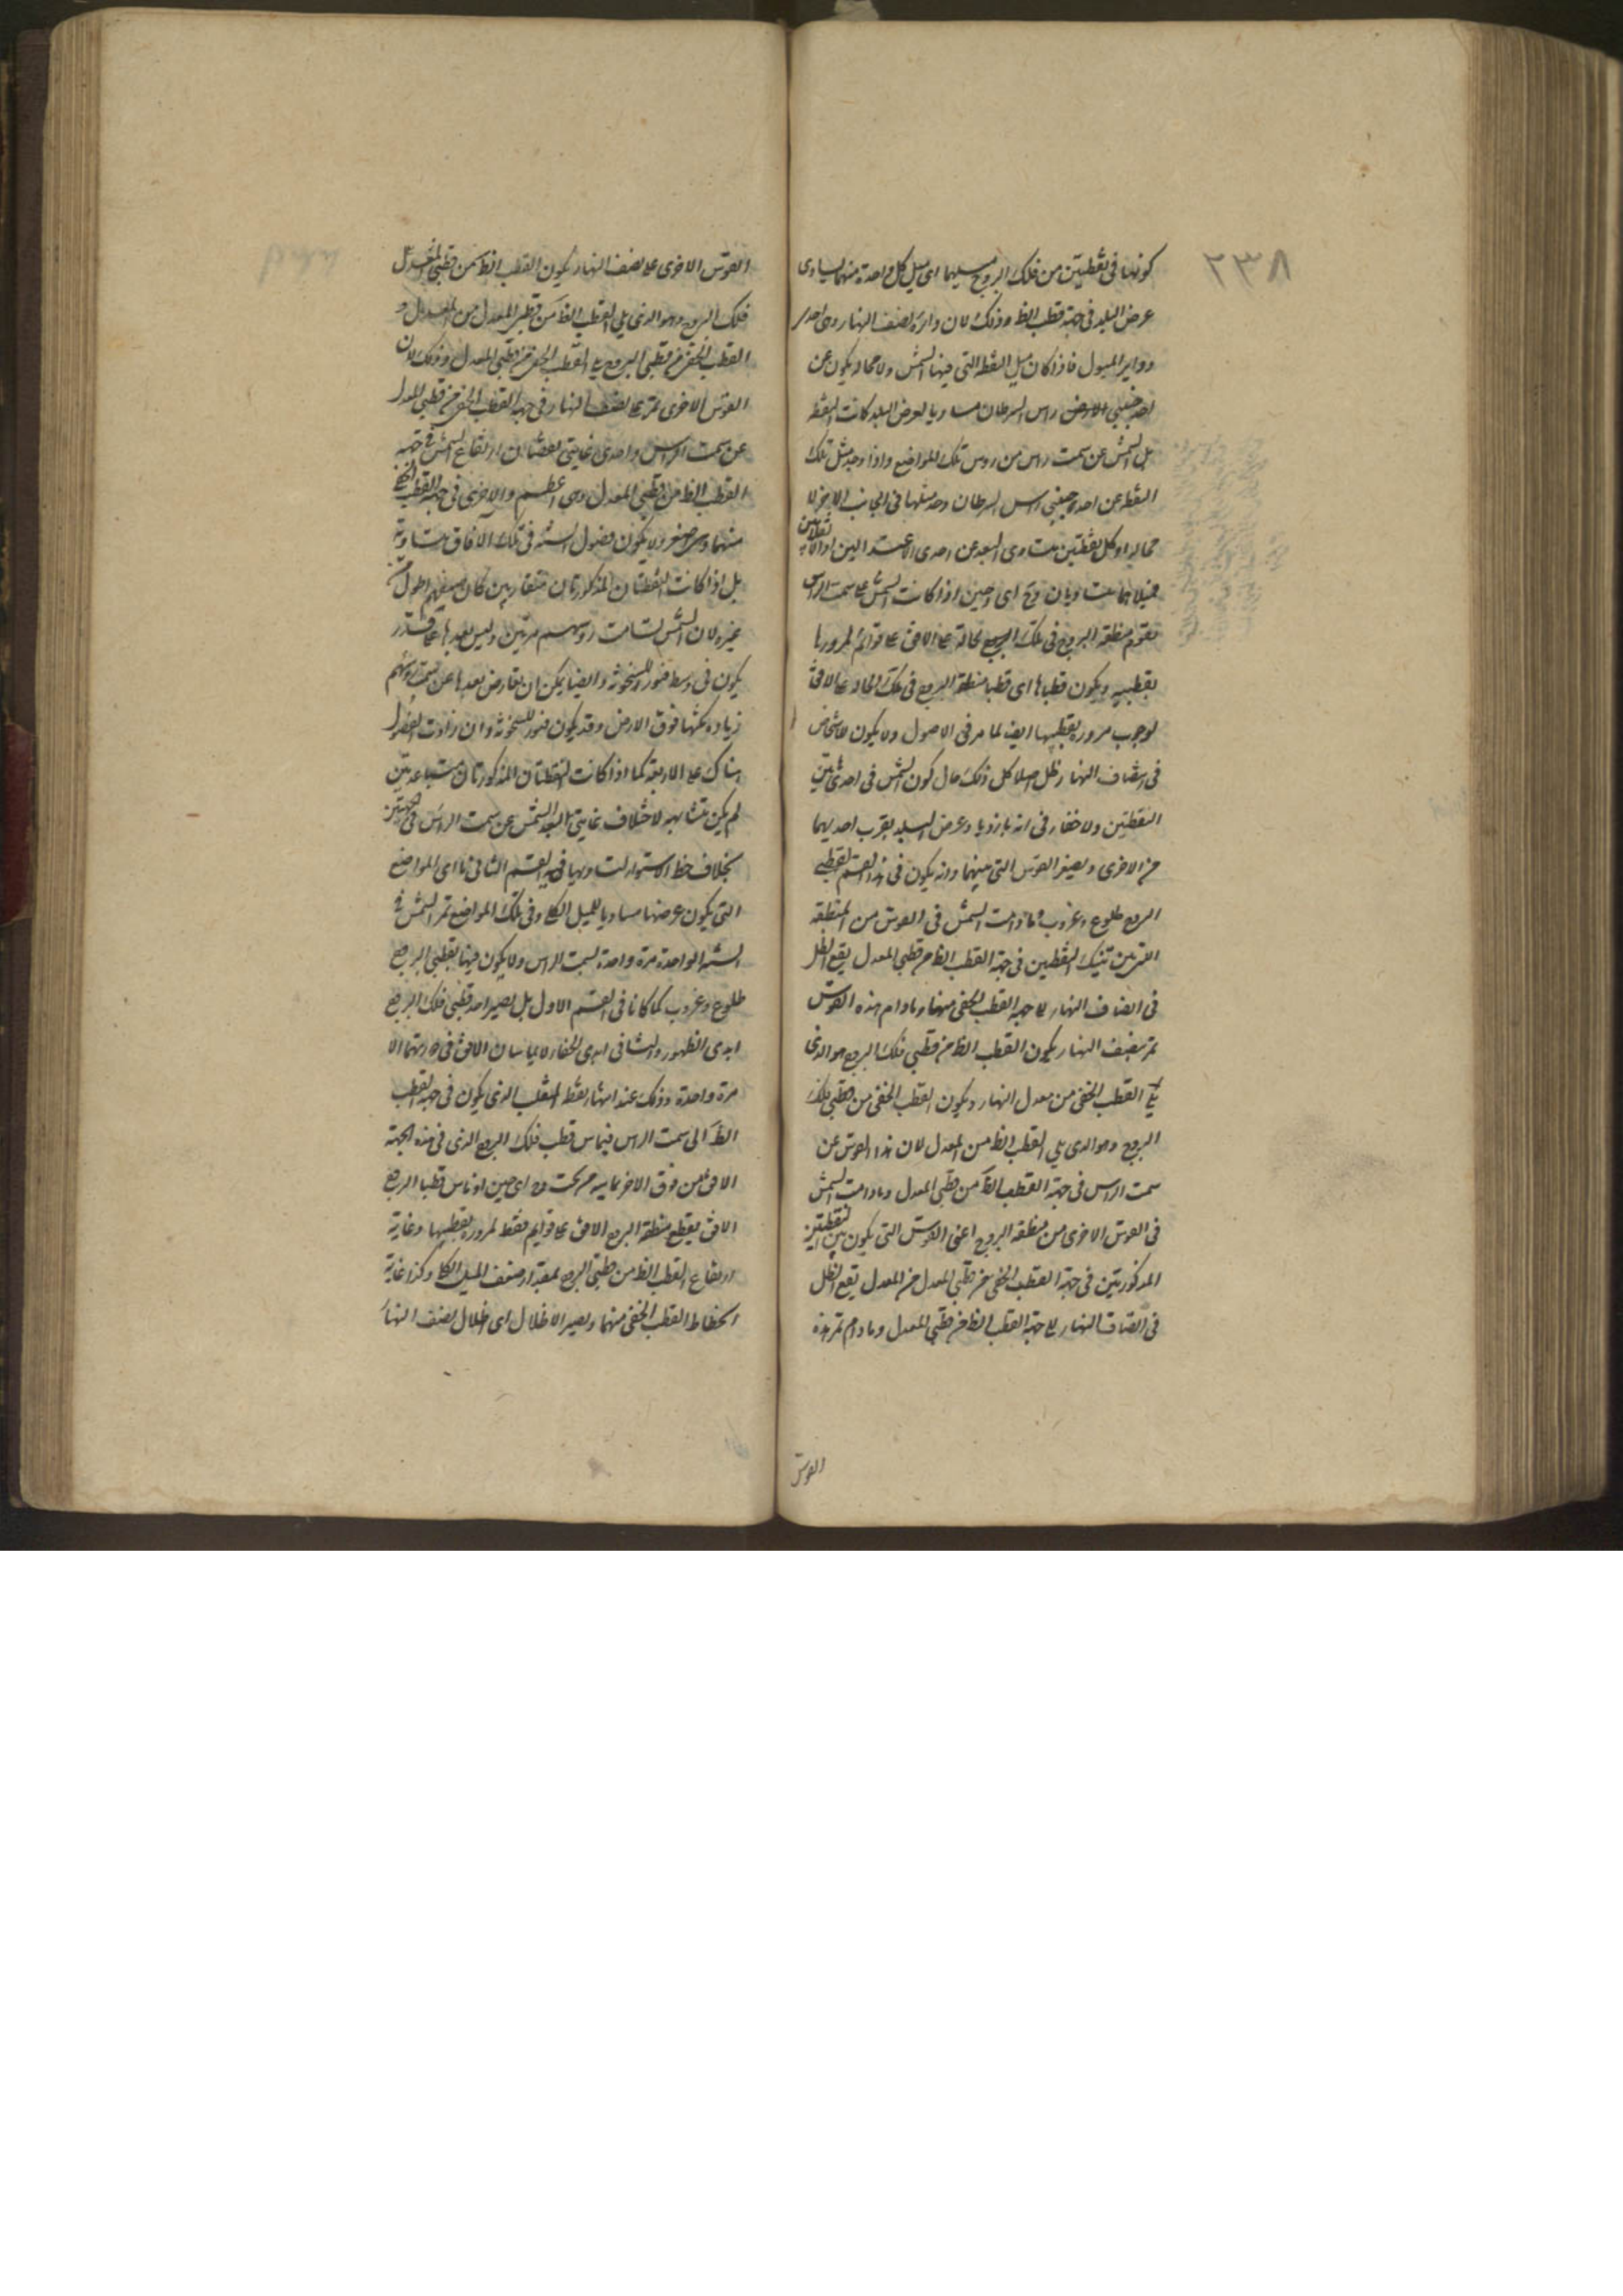 ٢٣٨
كونها فى نقطتين من فلك البروج ميلهما اى ميل كل واحدة منهما يساوى
عرض البلد فى جهة قطب الظ وذلك لان دائرة نصف النهار وهى احدى
دواير الميول فاذا كان ميل النقطة التى فيها الشمس ولا محالة يكون عن
احد جنبتى راس السرطان مساويا لعرض البلد كانت النقطة
بل الشمس عن سمت راس من روس تلك المواضع واذا وجد مثل تلك
النقطة عن احد جنبتى راس السرطان وجد مثلها فى الجانب الاخر لا
محالة اذ كل نقطتين متساوى البعد عن احدى الاعتدالين او الانقلابين
فميلاهما متساويان وح اى وحين اذا كانت الشمس على سمت الراس
تقوم منطقة البروج فى تلك الحالة على الافق على قوائم لمرورها
بقطبيه ويكون قطباها اى قطبا منطقة البروج فى تلك الحالة على الافق
لوجوب مروره بقطبيها ايضا لما مر فى الاصول ولا يكون للاشخاص
فى انصاف النهار ظل اصلا كل ذلك حال كون الشمس فى احدى هاتين
النقطتين ولا خفاء فى انه بازدياد عرض البلد يقرب احديهما
من الاخرى ويصغر القوس التى بينهما وانه يكون فى هذا القسم لقطبى
البروج طلوع وغروب وما دامت الشمس فى القوس من المنطقة
التى بين تينك النقطتين فى جهة القطب الظ من قطبى المعدل يقع الظل
فى انصاف النهار الى جهة القطب الخفى منهما وما دام هذه القوس
تمر بنصف النهار يكون القطب الظ من قطبى فلك البروج هو الذى
يلى القطب الخفى من معدل النهار ويكون القطب الخفى من قطبى فلك
البروج هو الذى يلى القطب الظ من المعدل لان هذا القوس عن
سمت الراس فى جهة القطب الظ من قطبى المعدل وما دامت الشمس
فى القوس الاخرى من منطقة البروج اعنى القوس التى يكون بين النقطتين
المذكورتين فى جهة القطب الخفى من قطبى المعدل من المعدل يقع الظل
فى انصاف النهار الى جهة القطب الظ من قطبى المعدل وما دام تمر هذه
القوس
القوس الاخرى على نصف النهار يكون القطب الظ من قطبى المعدل
فلك البروج وهو الذى يلى القطب الظ من قطبى المعدل من المعدل و
القطب الخفى من قطبى البروج يلى القطب الخفى من قطبى المعدل وذلك لان
القوس الاخرى تمر على نصف النهار فى جهة القطب الخفى من قطبى المعدل
عن سمت الراس واحدى غايتى نقصان ارتفاع الشمس فى جهة
القطب الظ من قطبى المعدل وهى اعظم والاخرى فى جهة القطب الخفى
منهما وهى اصغر ولا يكون فصول السنة فى تلك الافاق متساوية
بل اذا كانت النقطتان المذكورتان متقاربين كان صيفهم اطول
غيره لان الشمس تسامت رؤسهم مرتين وليس بعدها على قدر
يكون فى وسط فتور للسخونة وايضا يمكن ان يعارض بعدها عن سمت رؤسهم
زيادة مكثها فوق الارض وقد يكون فتور للسخونة وان زادت الفصول
هناك على الاربعة كما اذا كانت النقطتان المذكورتان متباعدتين
لم يكن متشابهة لاختلاف غايتى بعد الشمس عن سمت الراس فى الجهتين
بخلاف خط الاستواء لتساويهما فيه القسم الثانى ما اى المواضع
التى يكون عرضها مساويا للميل الكلى وفى تلك المواضع تمر الشمس فى
السنة الواحدة مرة واحدة بسمت الراس ولا يكون فيها لقطبى البروج
طلوع وغروب كما كانا فى القسم الاول بل يصير احد قطبى فلك البروج
ابدى الظهور والثانى ابدى الخفاء لا يماسان الافق فى دورتهما الا
مرة واحدة وذلك عند انتهاء نقطة المنقلب الذى يكون فى جهة القطب
الظ الى سمت الراس فيماس قطب فلك البروج الذى فى هذه الجهة
الافق من فوق والاخر يماسه من تحت وح اى حين اذ ماس قطبا البروج
الافق يقطع منطقة البروج الافق على قوايم فقط لمروره بقطبيها وغاية
ارتفاع القطب الظ من قطبى البروج بمقدار ضعف الميل الكلى وكذا غاية
انحطاط القطب الخفى منهما ويصير الاظلال اى اظلال نصف النهار